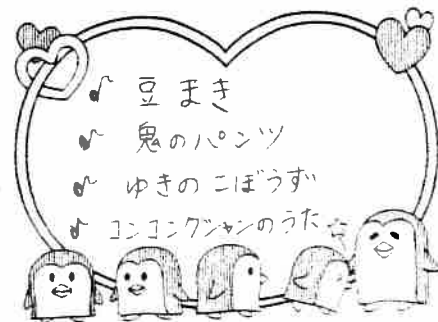 ♪ 豆まき
♪ 鬼のパンツ
♪ ゆきのこぼうず
♪ コンコングシャンのうた